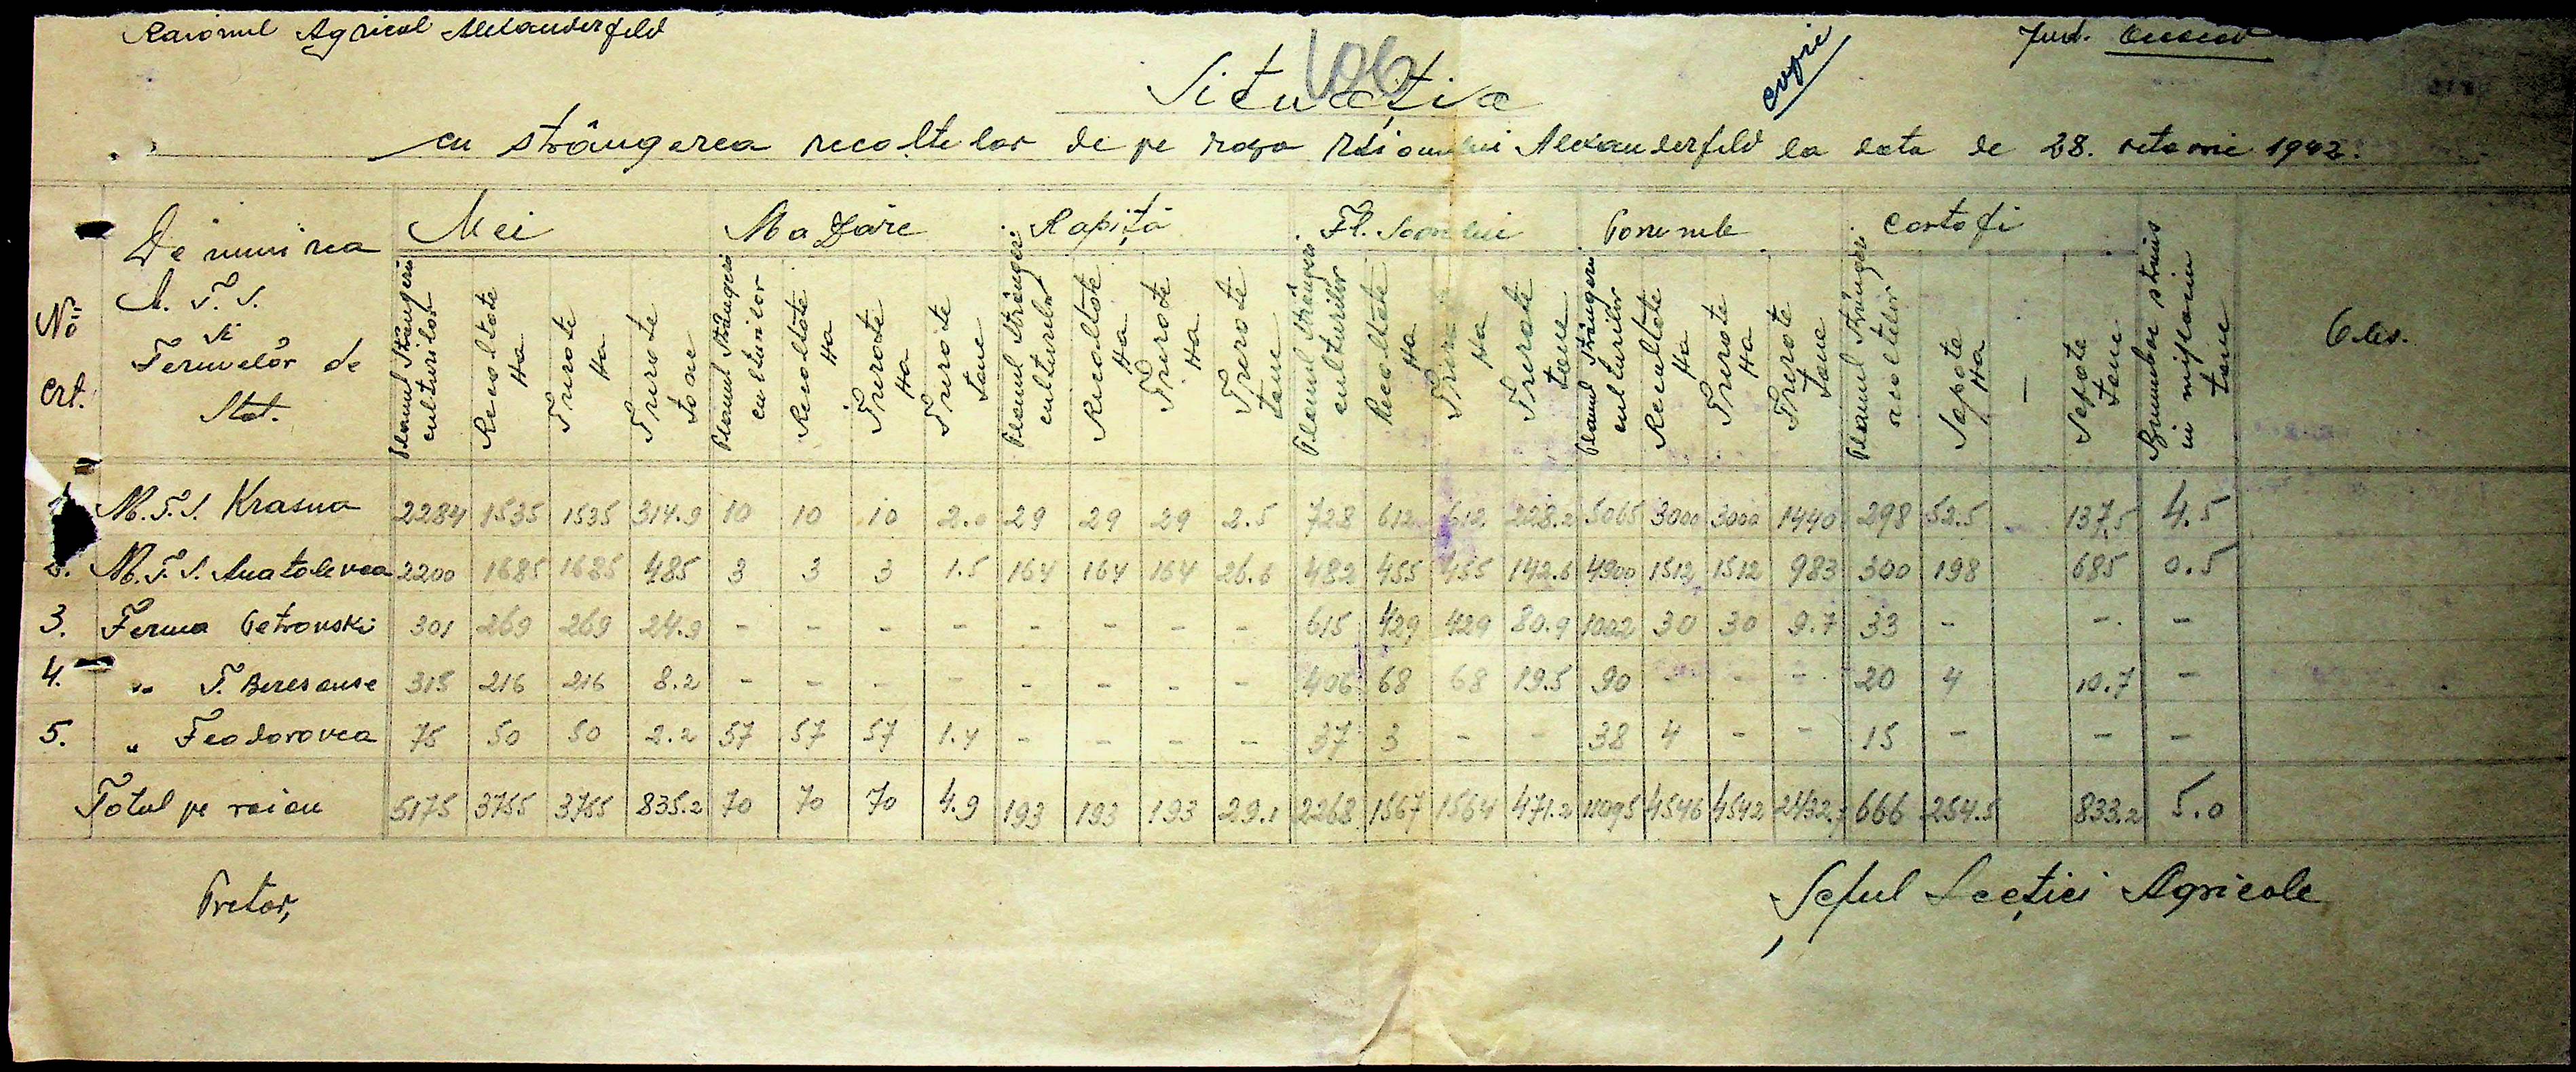 Raionul Agricol Alexanderfeld
Jud.
106
copie
Situația
cu strângerea recoltelor de pe raza Raionului Alexanderfeld la data de 28. octomvrie 1942.
No Crt. Denumirea M. T. S. și Fermelor de Stat. Mei Mazăre Rapiță Fl. Soarelui Porumb Cartofi Obs.
Planul Strângerii culturilor Recoltate Ha Treerate Ha Treerate tone Planul Strângerii culturilor Recoltate Ha Treerate Ha Treerate tone Planul Strângerii culturilor Recoltate Ha Treerate Ha Treerate tone Planul Strângerii culturilor Recoltate Ha Treerate Ha Treerate tone Planul Strângerii culturilor Recoltate Ha Treerate Ha Treerate tone Planul Strângerii recoltelor Sapate Ha — Sapate tone Bumbac strâns in tone
M.T.S. Krasna 2284 1535 1535 314.9 10 10 10 2.0 29 29 29 2.5 728 612 612 228.2 5065 3000 3000 1440 298 52.5 - 137.5 4.5
2. M.T.S. Anatolevca 2200 1685 1685 485 3 3 3 1.5 164 164 164 26.6 482 455 455 142.6 4900 1512 1512 983 300 198 685 0.5
3. Ferma Petrovski 301 269 269 24.9 - - - - - - - - 615 429 429 80.9 1002 30 30 9.7 33 - - -
4. " T. Beresanse 315 216 216 8.2 - - - - - - - - 406 68 68 19.5 90 - - - 20 4 10.7 -
5. " Feodorovca 75 50 50 2.2 57 57 57 1.4 - - - - 37 3 - - 38 4 - - 15 - - -
Total pe raion 5175 3755 3755 835.2 70 70 70 4.9 193 193 193 29.1 2268 1567 1564 471.2 11095 4546 4542 2432.7 666 254.5 833.2 5.0
Pretor,
Șeful Secției Agricole